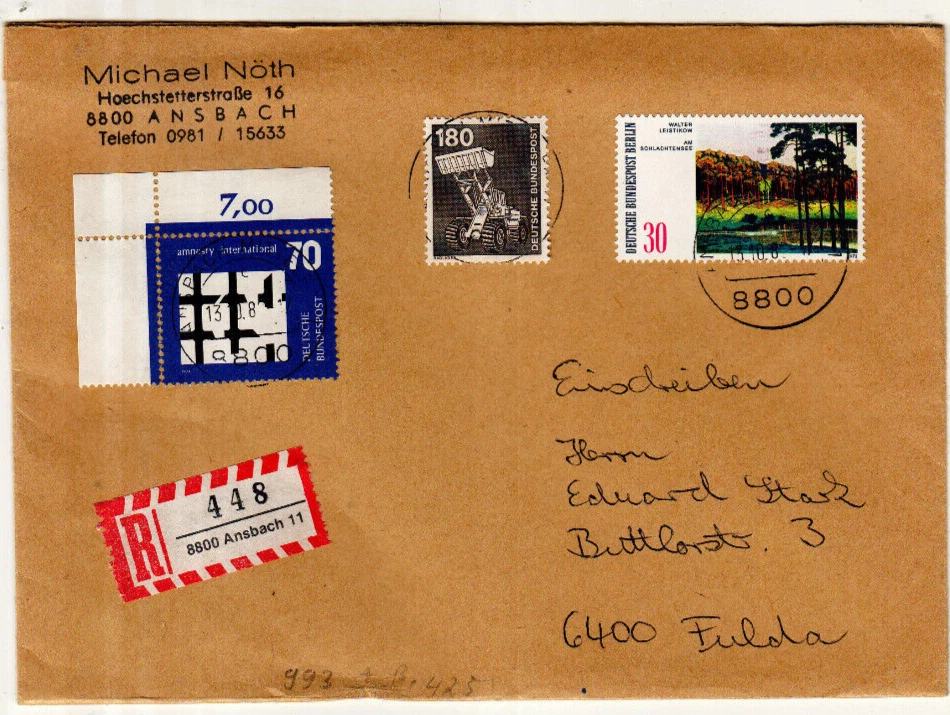 Michael Nöth
Hoechstetterstraße 16
8800 ANSBACH
Telefon 0981 / 15633
7,00
amnesty international
70
DEUTSCHE
BUNDESPOST
13
8800
180
DEUTSCHE BUNDESPOST
DEUTSCHE BUNDESPOST BERLIN
WALTER
LEISTIKOW
AM
SCHLACHTENSEE
30
8800
Einschreiben
Herrn
Eduard Stark
Buttlarstr. 3
6400 Fulda
R
448
8800 Ansbach 11
993
425